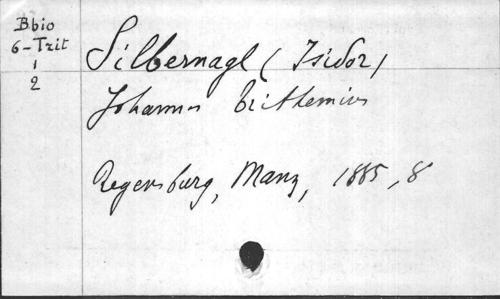 Bbio
6-Trit
1
2
Silbernagl (Isidor)
Johannes Trithemius
Regensburg, Manz, 1885, 8